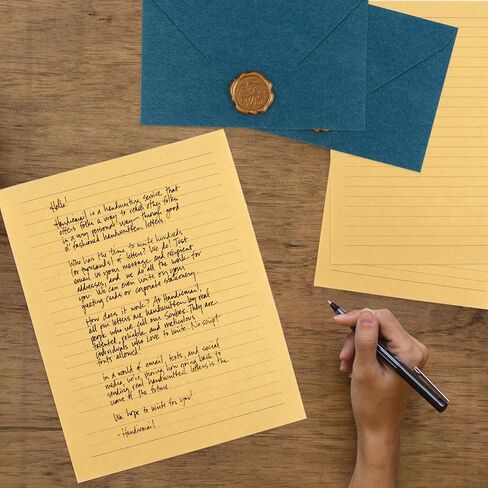 Hello!
Handiemail is a handwriting service that
offers folks a way to reach other folks
in a very personal way - through good
ol' fashioned handwritten letters.
Who has the time to write hundreds
(or thousands) of letters? We do! Just
email us your message and recipient
addresses, and we do all the work for
you. We can even write on your
greeting cards or corporate stationery.
How does it work? At Handiemail,
all our letters are handwritten by real
people who we call our Scribes. They are
talented, reliable and meticulous
individuals who love to write. No script
fonts allowed!
In a world of email, texts, and social
media, we're proving how going back to
sending real handwritten letters is the
wave of the future.
We hope to write for you!
- Handiemail